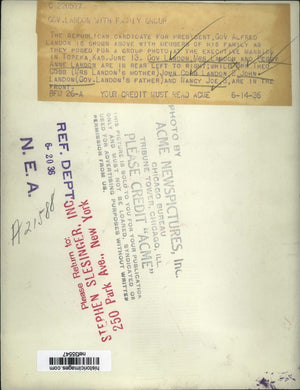 C 220577
GOV. LANDON WITH FAMILY GROUP
THE REPUBLICAN CANDIDATE FOR PRESIDENT, GOV ALFRED
LANDON IS SHOWN ABOVE WITH MEMBERS OF HIS FAMILY AS
THEY POSED FOR A GROUP PHOTO AT THE EXECUTIVE MANSION
IN TOPEKA, KAS. JUNE 13. GOV LANDON, MRS LANDON AND PEGGY
ANNE LANDON ARE IN REAR LEFT TO RIGHT.
COBB (MRS LANDON'S MOTHER), JOHN COBB LANDON E, JOHN
LANDON, (GOV. LANDON'S FATHER) AND NANCY JOE S, ARE IN THE
FRONT.
BFU 26-A YOUR CREDIT MUST READ ACME 6-14-36
PHOTO BY
ACME NEWSPICTURES, Inc.
CHICAGO BUREAU
TRIBUNE TOWER, CHICAGO, ILL.
PLEASE CREDIT "ACME"
THIS PICTURE IS SOLD TO YOU FOR YOUR PUBLICATION
ONLY AND MUST NOT BE LOANED, SYNDICATED OR
USED FOR ADVERTISING PURPOSES WITHOUT WRITTEN
PERMISSION FROM US.
Please Return to:
STEPHEN SLESINGER, INC.
250 Park Ave., New York
REF. DEPT.
6-20 36
N. E. A.
historicimages.com
nef35547